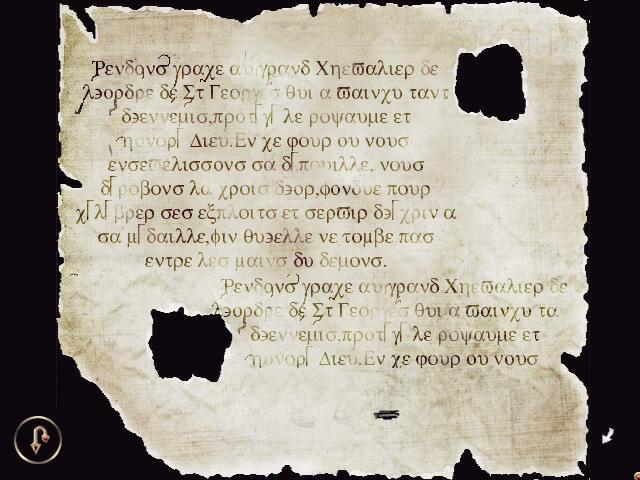 Ρενδονσ γραχε αυ γρανδ Χηεϖαλιερ δε
λэορδρε δε Στ Γεοργεσ θυι α ϖαινχυ ταντ
δэεννεμισ,προτ γ λε ροψαυμε ετ
ηονορ Διευ.Εν χε φουρ ου νουσ
ενσεϖελισσονσ σα δ πουιλλε, νουσ
δ ροβονσ λα χροιξ δэορ,φονδυε πουρ
χ λ βρερ σεσ εξπλοιτσ ετ σερϖιρ δэ χριν α
σα μ δαιλλε,φιν θυэελλε νε τομβε πασ
εντρε λεσ μαινσ δυ δεμονσ.
Ρενδονσ γραχε αυ γρανδ Χηεϖαλιερ δε
λэορδρε δε Στ Γεοργεσ θυι α ϖαινχυ τα
δэεννεμισ,προτ γ λε ροψαυμε ετ
ηονορ Διευ.Εν χε φουρ ου νουσ